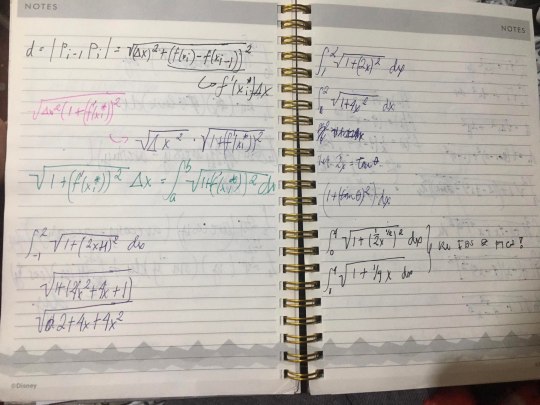 NOTES
d = |P_{i-1} P_i| = √((Δx)² + (f(x_i) - f(x_{i-1}))²)
↳ f'(x_i*)Δx
√(Δx²(1+(f'(x_i*))²)
↳ √(Δx²) · √(1+(f'(x_i*))²)
√(1+(f'(x_i*))²) Δx = ∫_a^b √(1+(f'(x_i*))²) dx
∫_{-1}^2 √(1+(2x+1)²) dx
√(1+(4x²+4x+1)
√(2+4x+4x²)
©Disney
NOTES
∫_1^2 √(1+(2x)²) dx
√(1+4x²) dx
= tanθ
(1+(tanθ)²) dx
∫_0^4 √(1+(½x^{-½})²) dx
∫_1^4 √(1+¼x) dx